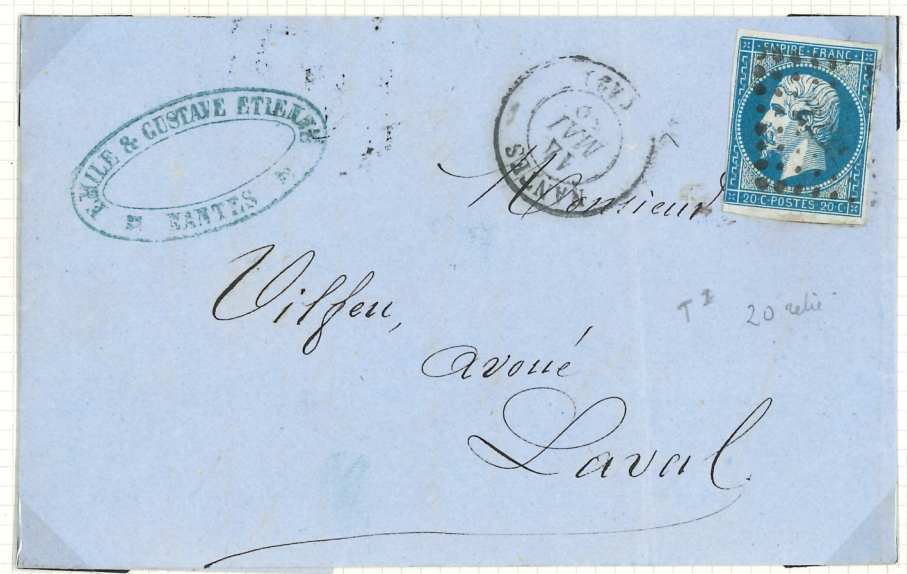 EMILE & GUSTAVE ETIENNE
NANTES
NANTES
14
MAI
(42)
EMPIRE FRANC
20 C·POSTES 20 C·
Monsieur
Vilfeu,
avoué
Laval
T I 20 relié